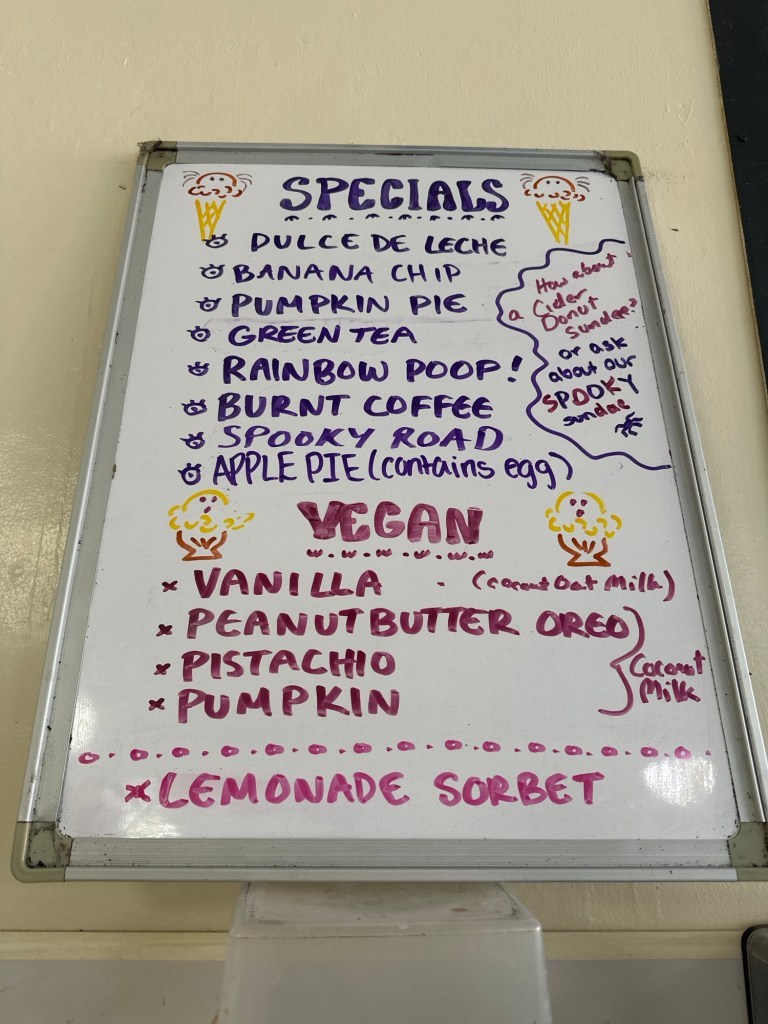 SPECIALS
DULCE DE LECHE
BANANA CHIP
PUMPKIN PIE
GREEN TEA
RAINBOW POOP!
BURNT COFFEE
SPOOKY ROAD
APPLE PIE (contains egg)
How about
a Cider
Donut
sundae?
or ask
about our
SPOOKY
sundae
VEGAN
VANILLA (coconut Oat Milk)
PEANUT BUTTER OREO
PISTACHIO
PUMPKIN
Coconut
Milk
LEMONADE SORBET